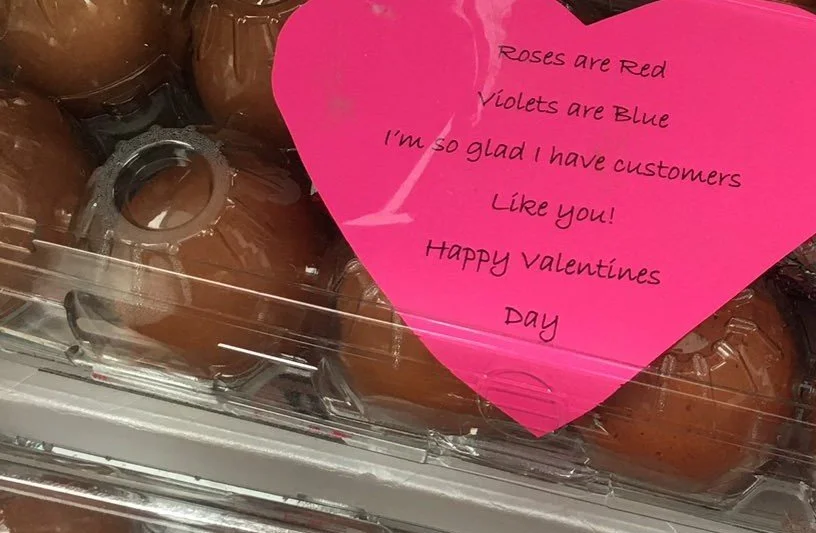 Roses are Red
Violets are Blue
I'm so glad I have customers
Like you!
Happy Valentines
Day